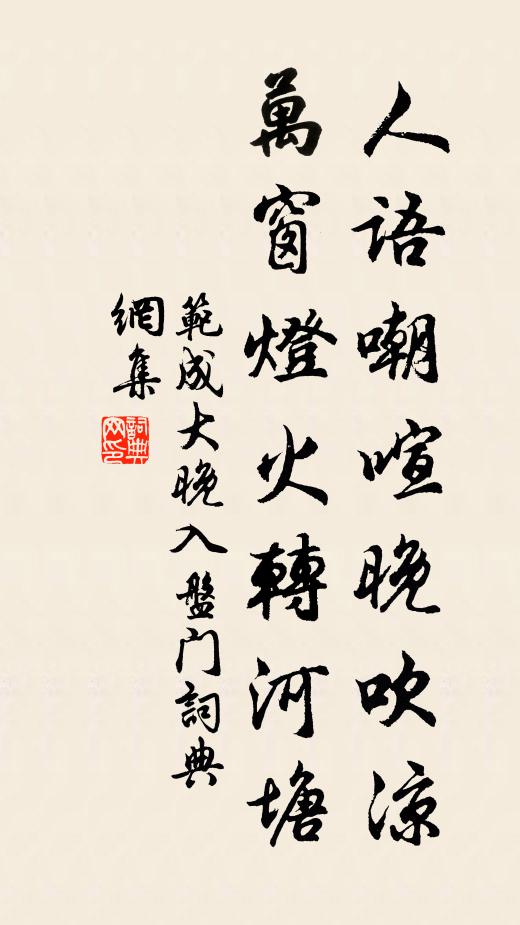 人語嘲喧晚吹涼
萬窗燈火轉河塘
範成大晚入盤门詞典
網集
詞典
网印